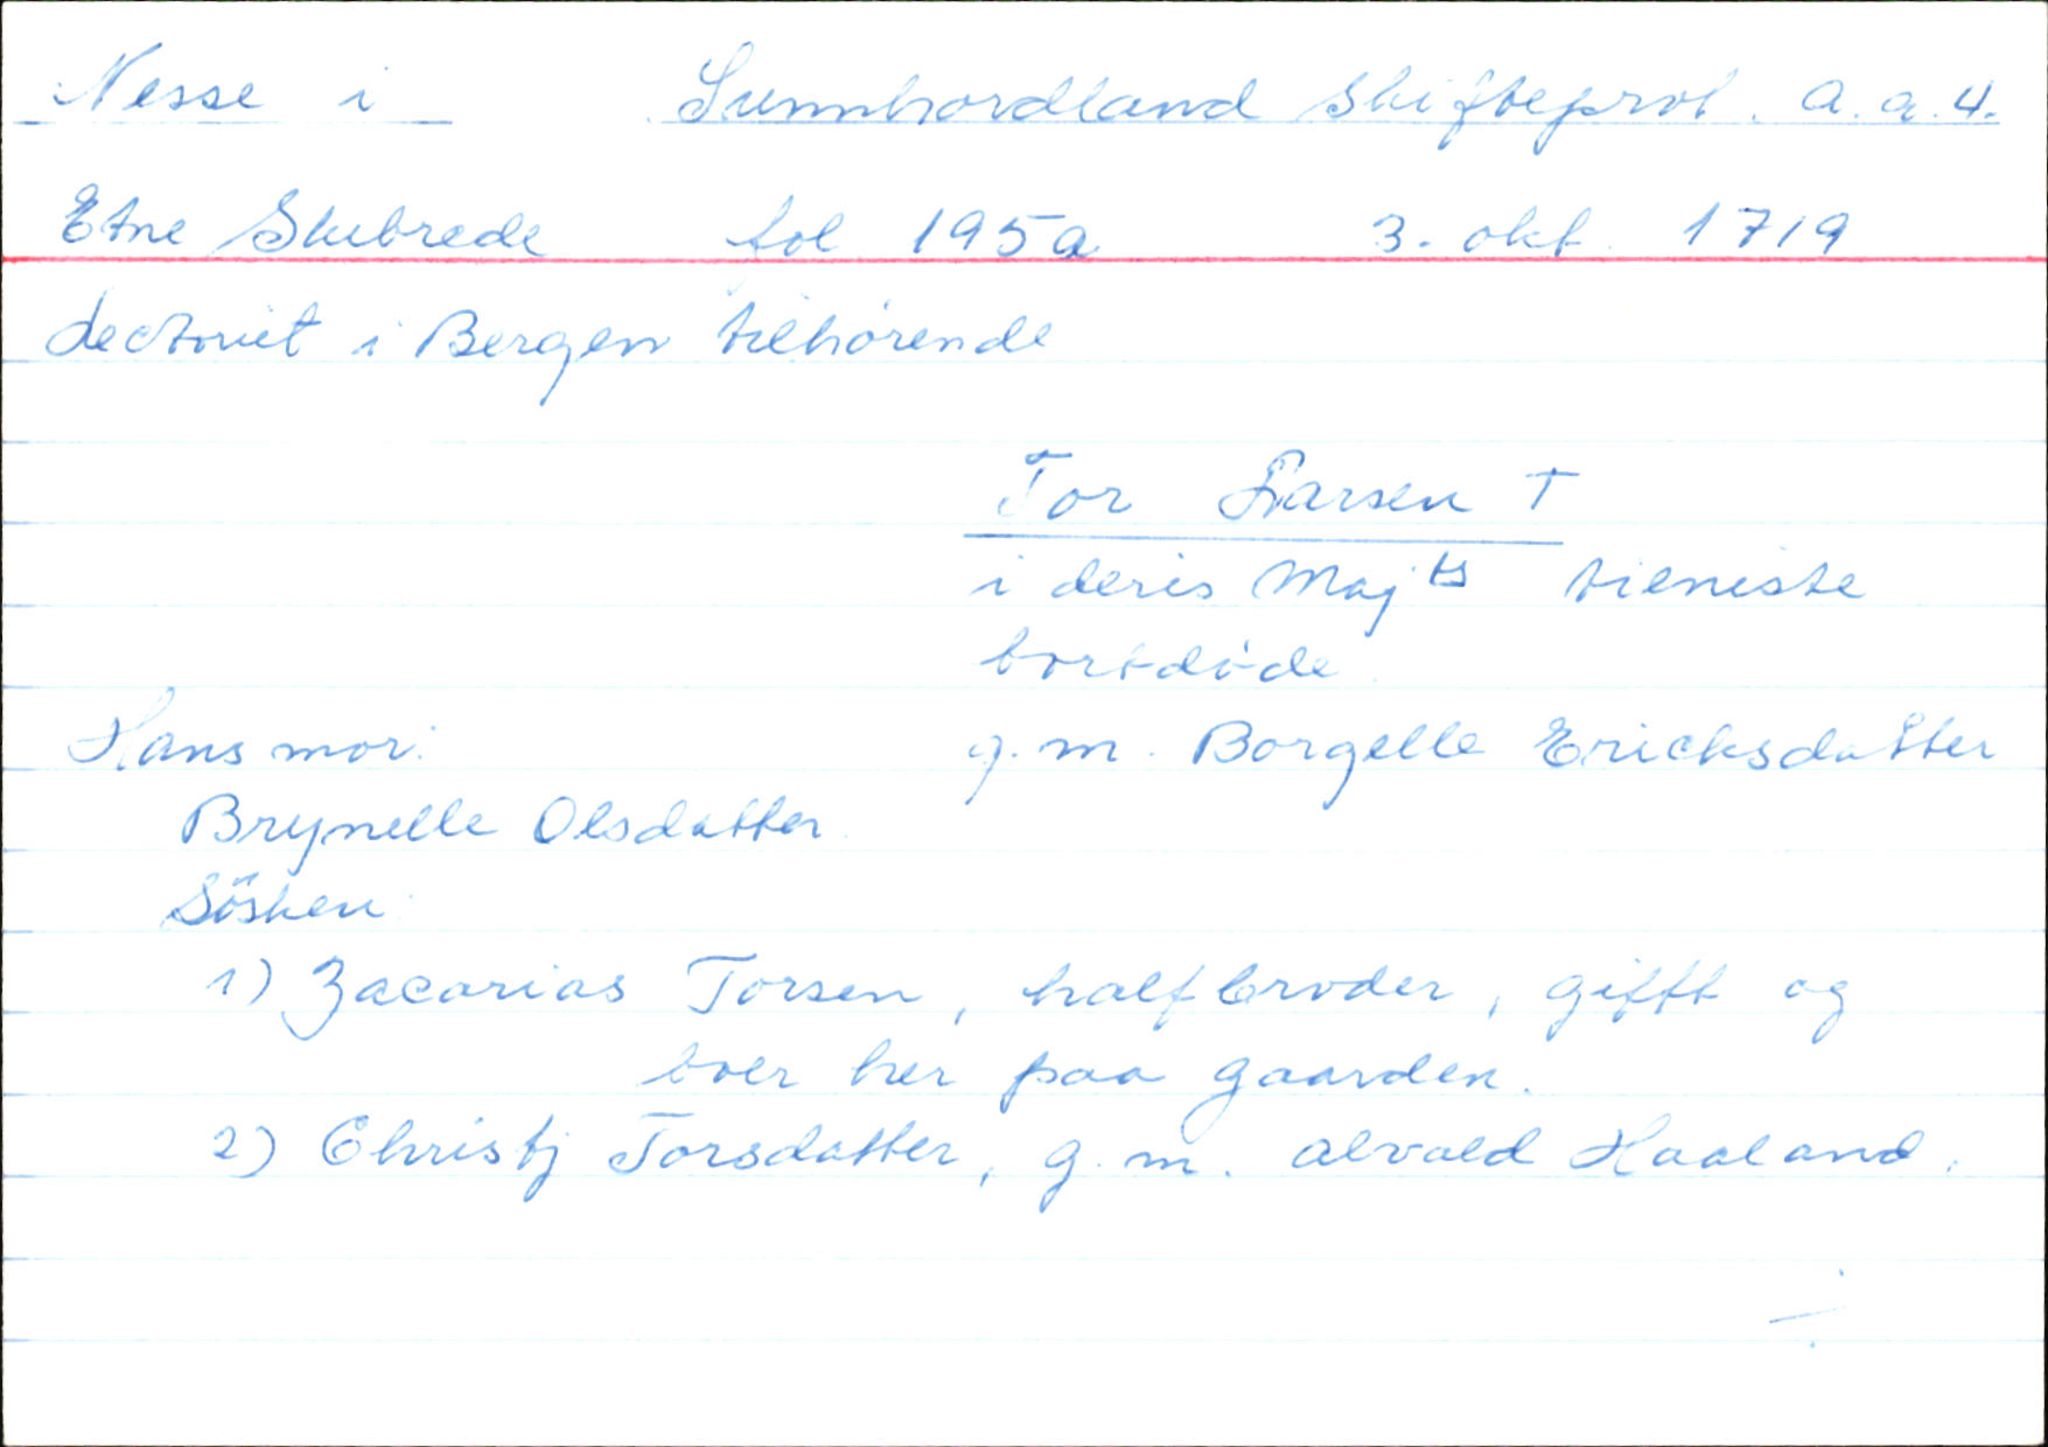 Nesse i Sunnhordland Skifteprot. a.a.4.
Etne Skibrede fol 195a 3. okt. 1719
dectoriet i Bergen tilhørende
Tor Larsen †
i deris Maj ts tieniste
bortdöde
Hans mor: g.m. Borgelle Ericksdatter
Brynelle Olsdatter
Sösken:
1) Zacarias Torsen, halfbroder, gifft og
boer her paa gaarden.
2) Christj Torsdatter, g.m. alvald Haaland.